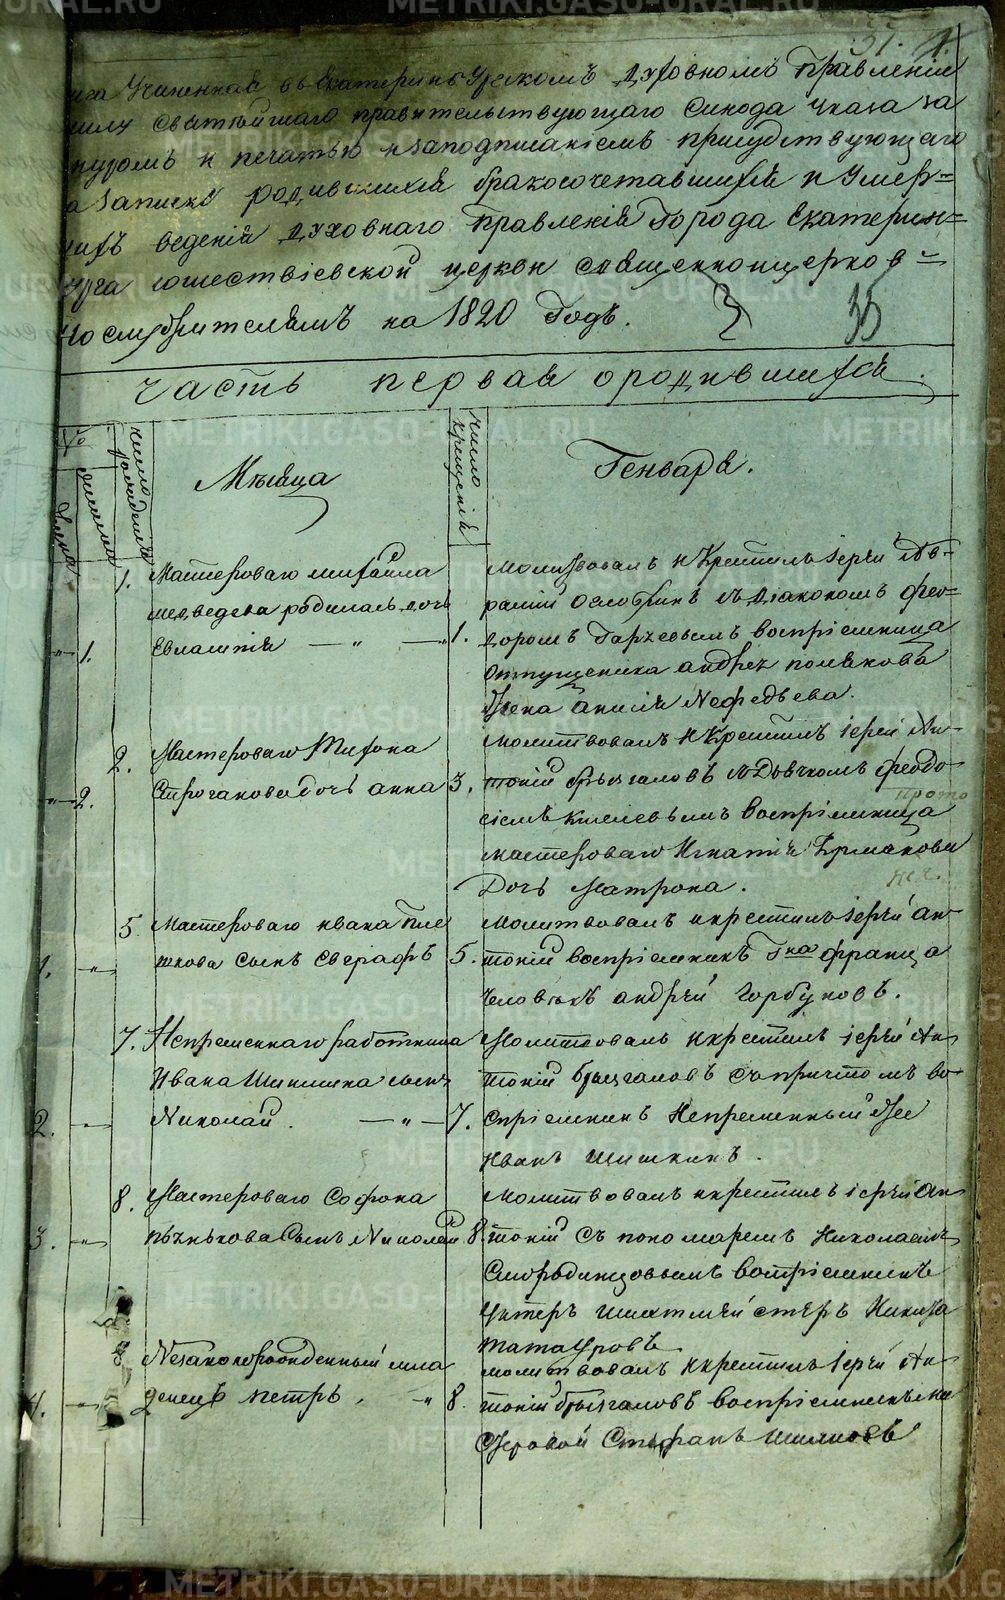 31. 1.
ига Учиненная въ Екатеринбургскомъ Духовномъ Правленіи
силу Святѣйшаго правительствующаго Синода указа за
шнуромъ и печатью и заподписаніемъ присудствующаго
а записки родившихся бракосочетавшихся и умер=
шихъ веденія Духовнаго Правленія Города Екатерин=
бурга сошествіевской церкви священноцерков=
но служителямъ на 1820 Годъ. 35
часть первая ородившихся.
число рожденія
Мѣсяца
число крещенія
Генваря.
1. Мастероваго михайла
медведева родилась дочь
Евлампія — " — 1.
1.
молитвовалъ и Крестилъ Іерей Ав-
рамій съ Діакономъ Фео-
доромъ воспріемница
андрея полякова
жена Нефедьева.
2. Мастероваго Тихона
Строганова дочь анна 3.
2.
молитвовалъ и Крестилъ іерей Ан-
тоній брызгаловъ съ Дьячкомъ феодо
сіемъ Киселевымъ воспріемница
мастероваго Игнатія Ермакова
Дочь Матрона.
5. Мастероваго ивана Пле
шкова сынъ Серафъ 5.
1.
молитвовалъ и крестилъ Іерей ан
тоній воспріемникъ Гна франца
человѣкъ андрей Горбуновъ.
7. Непременнаго работника
Ивана Шишкина сынъ
Николай. — " — 7.
2.
Молитвовалъ и крестилъ іерей Ан
тоній брызгаловъ съ причтомъ во
спріемникъ Непременный же
иванъ шишкинъ.
8. Мастероваго Софона
пѣнькова Сынъ Николай 8.
3.
молитвовалъ и крестилъ іерей Ан
тоній съ пономаремъ Николаемъ
Смородинцовымъ воспріемникъ
Унтеръ шихтмейстеръ Никита
татауровъ
8 Незаконорожденный мла
денецъ петръ. " 8.
4.
молитвовалъ и крестилъ Іерей Ан
тоній брызгаловъ воспріемникъ ма
стеровой Стефанъ